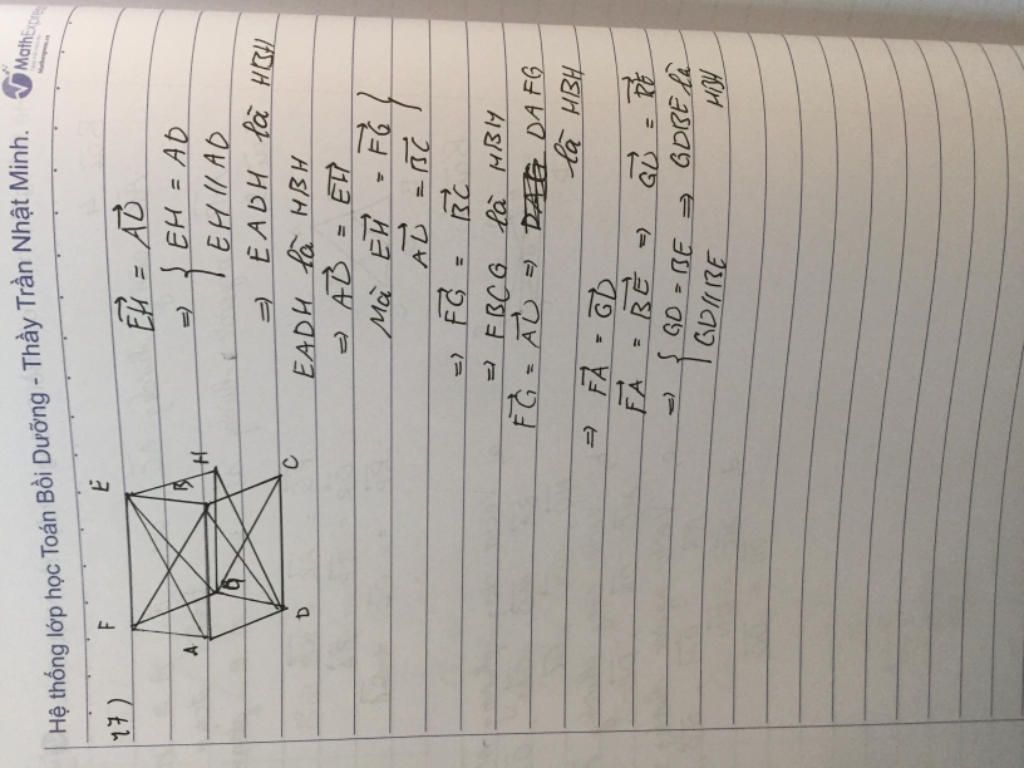 Hệ thống lớp học Toán Bồi Dưỡng - Thầy Trần Nhật Minh.
MathExpress
27)
F E
A B H
G
D C
EH = AD
=> { EH = AD
EH // AD
=> EADH là HBH
EADH là HBH
=> AD = EH
Mà EH = FG }
AD = BC
=> FG = BC
=> FBCG là HBH
FG = AD => DAFG
là HBH
=> FA = GD
FA = BE => GD = BE
=> { GD = BE => GDBE là
GD // BE HBH